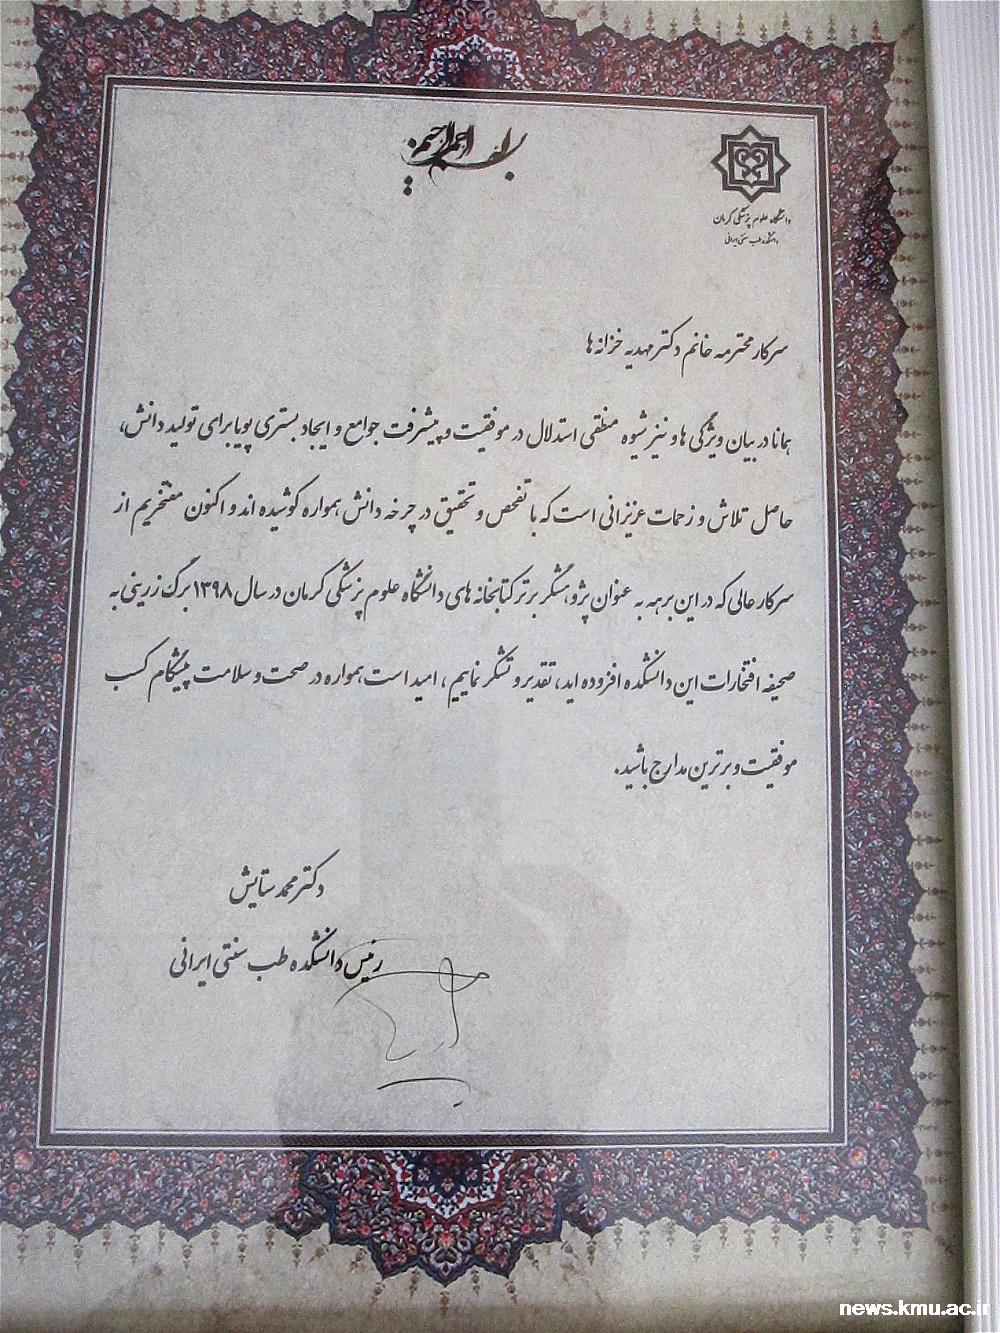 بسم الله الرحمن الرحیم
دانشگاه علوم پزشکی کرمان
دانشکده طب سنتی ایرانی
سرکار محترمه خانم دکتر مهدیه خزانه ها
همانا در بیان ویژگی ها و نیز شیوه منطقی استدلال در موفقیت و پیشرفت جوامع و ایجاد بستری پویا برای تولید دانش،
حاصل تلاش و زحمات عزیزانی است که با تفحص و تحقیق در چرخه دانش همواره کوشیده اند و اکنون مفتخریم از
سرکار عالی که در این برهه به عنوان پژوهشگر برتر کتابخانه های دانشگاه علوم پزشکی کرمان در سال ۱۳۹۸ برگ زرینی به
صحیفه افتخارات این دانشکده افزوده اید، تقدیر و تشکر نماییم، امید است همواره در صحت و سلامت پیشگام کسب
موفقیت و برترین مدارج باشید.
دکتر محمد ستایش
رئیس دانشکده طب سنتی ایرانی
news.kmu.ac.ir